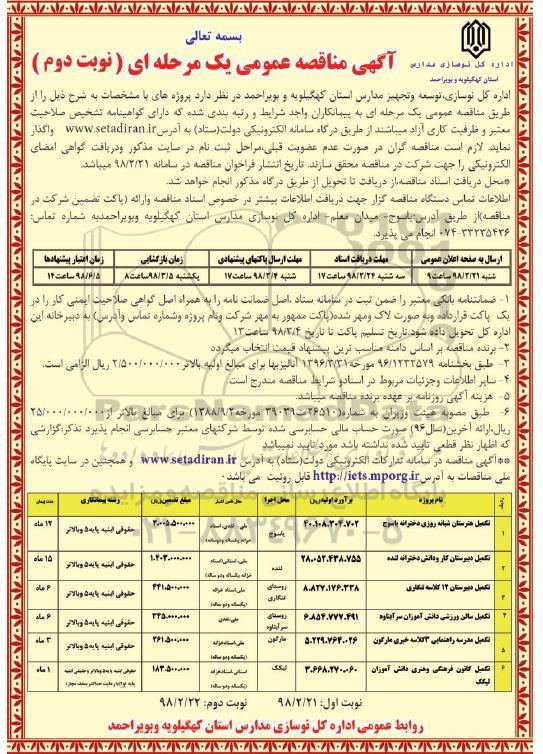 بسمه تعالی
آگهی مناقصه عمومی یک مرحله ای ( نوبت دوم )
اداره کل نوسازی مدارس
استان کهگیلویه و بویراحمد
اداره کل نوسازی،توسعه وتجهیز مدارس استان کهگیلویه و بویراحمد در نظر دارد پروژه های با مشخصات به شرح ذیل را از
طریق مناقصه عمومی یک مرحله ای به پیمانکاران واجد شرایط و رتبه بندی شده که دارای گواهینامه تشخیص صلاحیت
معتبر و ظرفیت کاری آزاد میباشند از طریق درگاه سامانه الکترونیکی دولت(ستاد) به آدرس www.setadiran.ir واگذار
نماید. لازم است مناقصه گران در صورت عدم عضویت قبلی،مراحل ثبت نام در سایت مذکور ودریافت گواهی امضای
الکترونیکی را جهت شرکت در مناقصه محقق سازند. تاریخ انتشار فراخوان مناقصه در سامانه ۹۸/۲/۲۱ میباشد.
*محل دریافت اسناد مناقصه،از دریافت تا تحویل از طریق درگاه مذکور انجام خواهد شد.
اطلاعات تماس دستگاه مناقصه گزار جهت دریافت اطلاعات بیشتر در خصوص اسناد مناقصه وارائه (پاکت تضمین شرکت در
مناقصه)از طریق آدرس:یاسوج- میدان معلم- اداره کل نوسازی مدارس استان کهگیلویه وبویراحمدبه شماره تماس:
۰۷۴-۳۳۲۳۵۴۳۶ انجام می پذیرد.
ارسال به صفحه اعلان عمومی مهلت دریافت اسناد مهلت ارسال پاکتهای پیشنهادی زمان بازگشایی زمان اعتبار پیشنهادها
شنبه ۹۸/۲/۲۱ ساعت۹ سه شنبه ۹۸/۲/۲۴ ساعت۱۷ شنبه ۹۸/۳/۴ ساعت۱۷ یکشنبه ۹۸/۳/۵ساعت۸ ۹۸/۶/۵ ساعت۱۴
۱- ضمانتنامه بانکی معتبر را ضمن ثبت در سامانه ستاد ،اصل ضمانت نامه را به همراه اصل گواهی صلاحیت ایمنی کار را در
یک پاکت قرارداده وبه صورت لاک ومهر شده(پاکت ممهور به مهر شرکت ونام پروژه وشماره تماس وآدرس) به دبیرخانه این
اداره کل تحویل داده شود.تاریخ تسلیم پاکت تا تاریخ ۹۸/۳/۴ ساعت۱۳
۲- برنده مناقصه بر اساس دامنه مناسب ترین پیشنهاد قیمت انتخاب میگردد
۳- طبق بخشنامه ۹۶/۱۲۳۲۵۷۹ مورخه۱۳۹۶/۳/۳۱ آنالیزبها برای مبالغ اولیه بالاتر۲/۵۰۰/۰۰۰/۰۰۰ ریال الزامی است.
۴- سایر اطلاعات وجزئیات مربوط در اسنادو شرایط مناقصه مندرج است
۵- هزینه آگهی روزنامه بر عهده برنده مناقصه میباشد.
۶- طبق مصوبه هیئت وزیران به شماره(۲۶۵۱۰ت۳۹۰۳۹ مورخه۱۳۸۸/۹/۳) برای مبالغ بالاتر از۲۵/۰۰۰/۰۰۰/۰۰۰
ریال،ارائه آخرین(سال۹۶) صورت حساب مالی حسابرسی شده توسط شرکتهای معتبر حسابرسی انجام پذیرد تذکر:گزارشی
که اظهار نظر قطعی تایید شده نداشته باشد مورد تایید نمیباشد
**آگهی مناقصه در سامانه تدارکات الکترونیکی دولت(ستاد) به آدرس www.setadiran.ir و همچنین در سایت پایگاه
ملی مناقصات به آدرس http://iets.mporg.ir قابل روئیت می باشد.
ردیف نام پروژه برآورد اولیه(ریال) محل اجرا محل تامین اعتبار مبلغ تضمین(ریال) رشته پیمانکاری مدت پیمان
۱ تکمیل هنرستان شبانه روزی دخترانه یاسوج ۴۰.۱۰۸.۳۰۴.۷۰۲ یاسوج ملی-نقدی-اسناد خزانه یکساله ودوساله ۲.۰۰۵.۵۰۰.۰۰۰ حقوقی ابنیه پایه۵ وبالاتر ۱۲ ماه
۲ تکمیل دبیرستان کار ودانش دخترانه لنده ۲۸.۰۵۲.۴۳۸.۷۵۵ لنده ملی-استانی-اسناد خزانه یکساله ودوساله ۱.۴۰۳.۰۰۰.۰۰۰ حقوقی ابنیه پایه۵ وبالاتر ۱۵ ماه
۳ تکمیل دبیرستان ۱۲ کلاسه تنگاری ۸.۸۲۷.۱۷۶.۳۳۸ روستای تنگاری ملی-اسناد خزانه (یکساله ودو ساله) ۴۴۱.۵۰۰.۰۰۰ حقوقی ابنیه پایه۵ وبالاتر ۶ ماه
۴ تکمیل سالن ورزشی دانش آموزان سرآبتاوه ۶.۸۵۴.۷۷۷.۴۹۱ روستای سرآبتاوه ملی-نقدی ۳۴۵.۰۰۰.۰۰۰ حقوقی ابنیه پایه۵ وبالاتر ۶ ماه
۵ تکمیل مدرسه راهنمایی ۳کلاسه خیری مارگون ۵.۲۲۹.۷۶۴.۰۲۶ مارگون ملی-اسناد خزانه یکساله ودو ساله ۲۶۱.۵۰۰.۰۰۰ حقوقی ابنیه پایه۵ وبالاتر ۳ ماه
۶ تکمیل کانون فرهنگی وهنری دانش آموزان لیکک ۳.۶۶۸.۲۷۰.۰۶۰ لیکک استانی-اسنادخزانه یکساله ودو ساله ۱۸۳.۵۰۰.۰۰۰ حقوقی ابنیه پایه۵ وبالاتر وحقیقی ابنیه پایه ۱و۲(با رعایت حداکثر سقف مجاز) ۱ ماه
نوبت اول: ۹۸/۲/۲۱ نوبت دوم: ۹۸/۲/۲۲
روابط عمومی اداره کل نوسازی مدارس استان کهگیلویه وبویراحمد